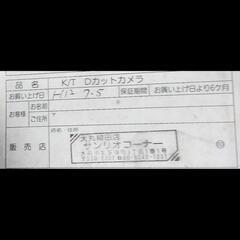 品名 K/T Dカットカメラ
お買い上げ日 H12 7.5 保証期間 お買い上げ日より6ケ月
お客様 お名前
ご住所 〒
販売店 店名・住所
大丸 店
サンリオコーナー